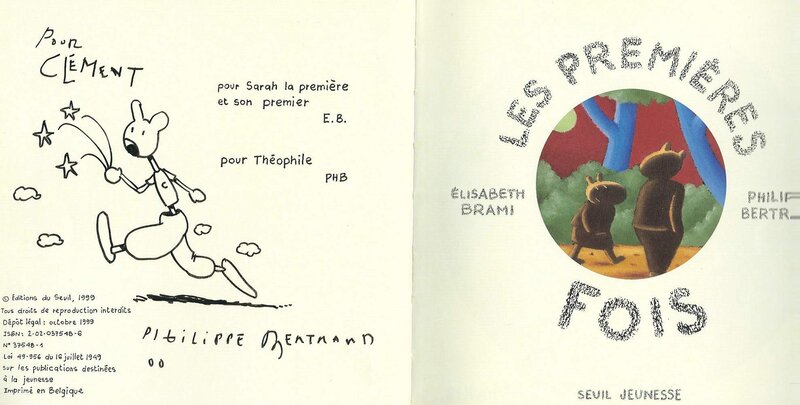 Pour
CLÉMENT
pour Sarah la première
et son premier
E.B.
pour Théophile
PHB
C
© Éditions du Seuil, 1999
Tous droits de reproduction interdits
Dépôt légal : octobre 1999
ISBN : 2-02-037548-6
N° 37548-1
Loi 49-956 du 16 juillet 1949
sur les publications destinées
à la jeunesse
Imprimé en Belgique
PHILIPPE BERTRAND
LES PREMIÈRES
ÉLISABETH
BRAMI
PHILIP
BERTR
FOIS
SEUIL JEUNESSE